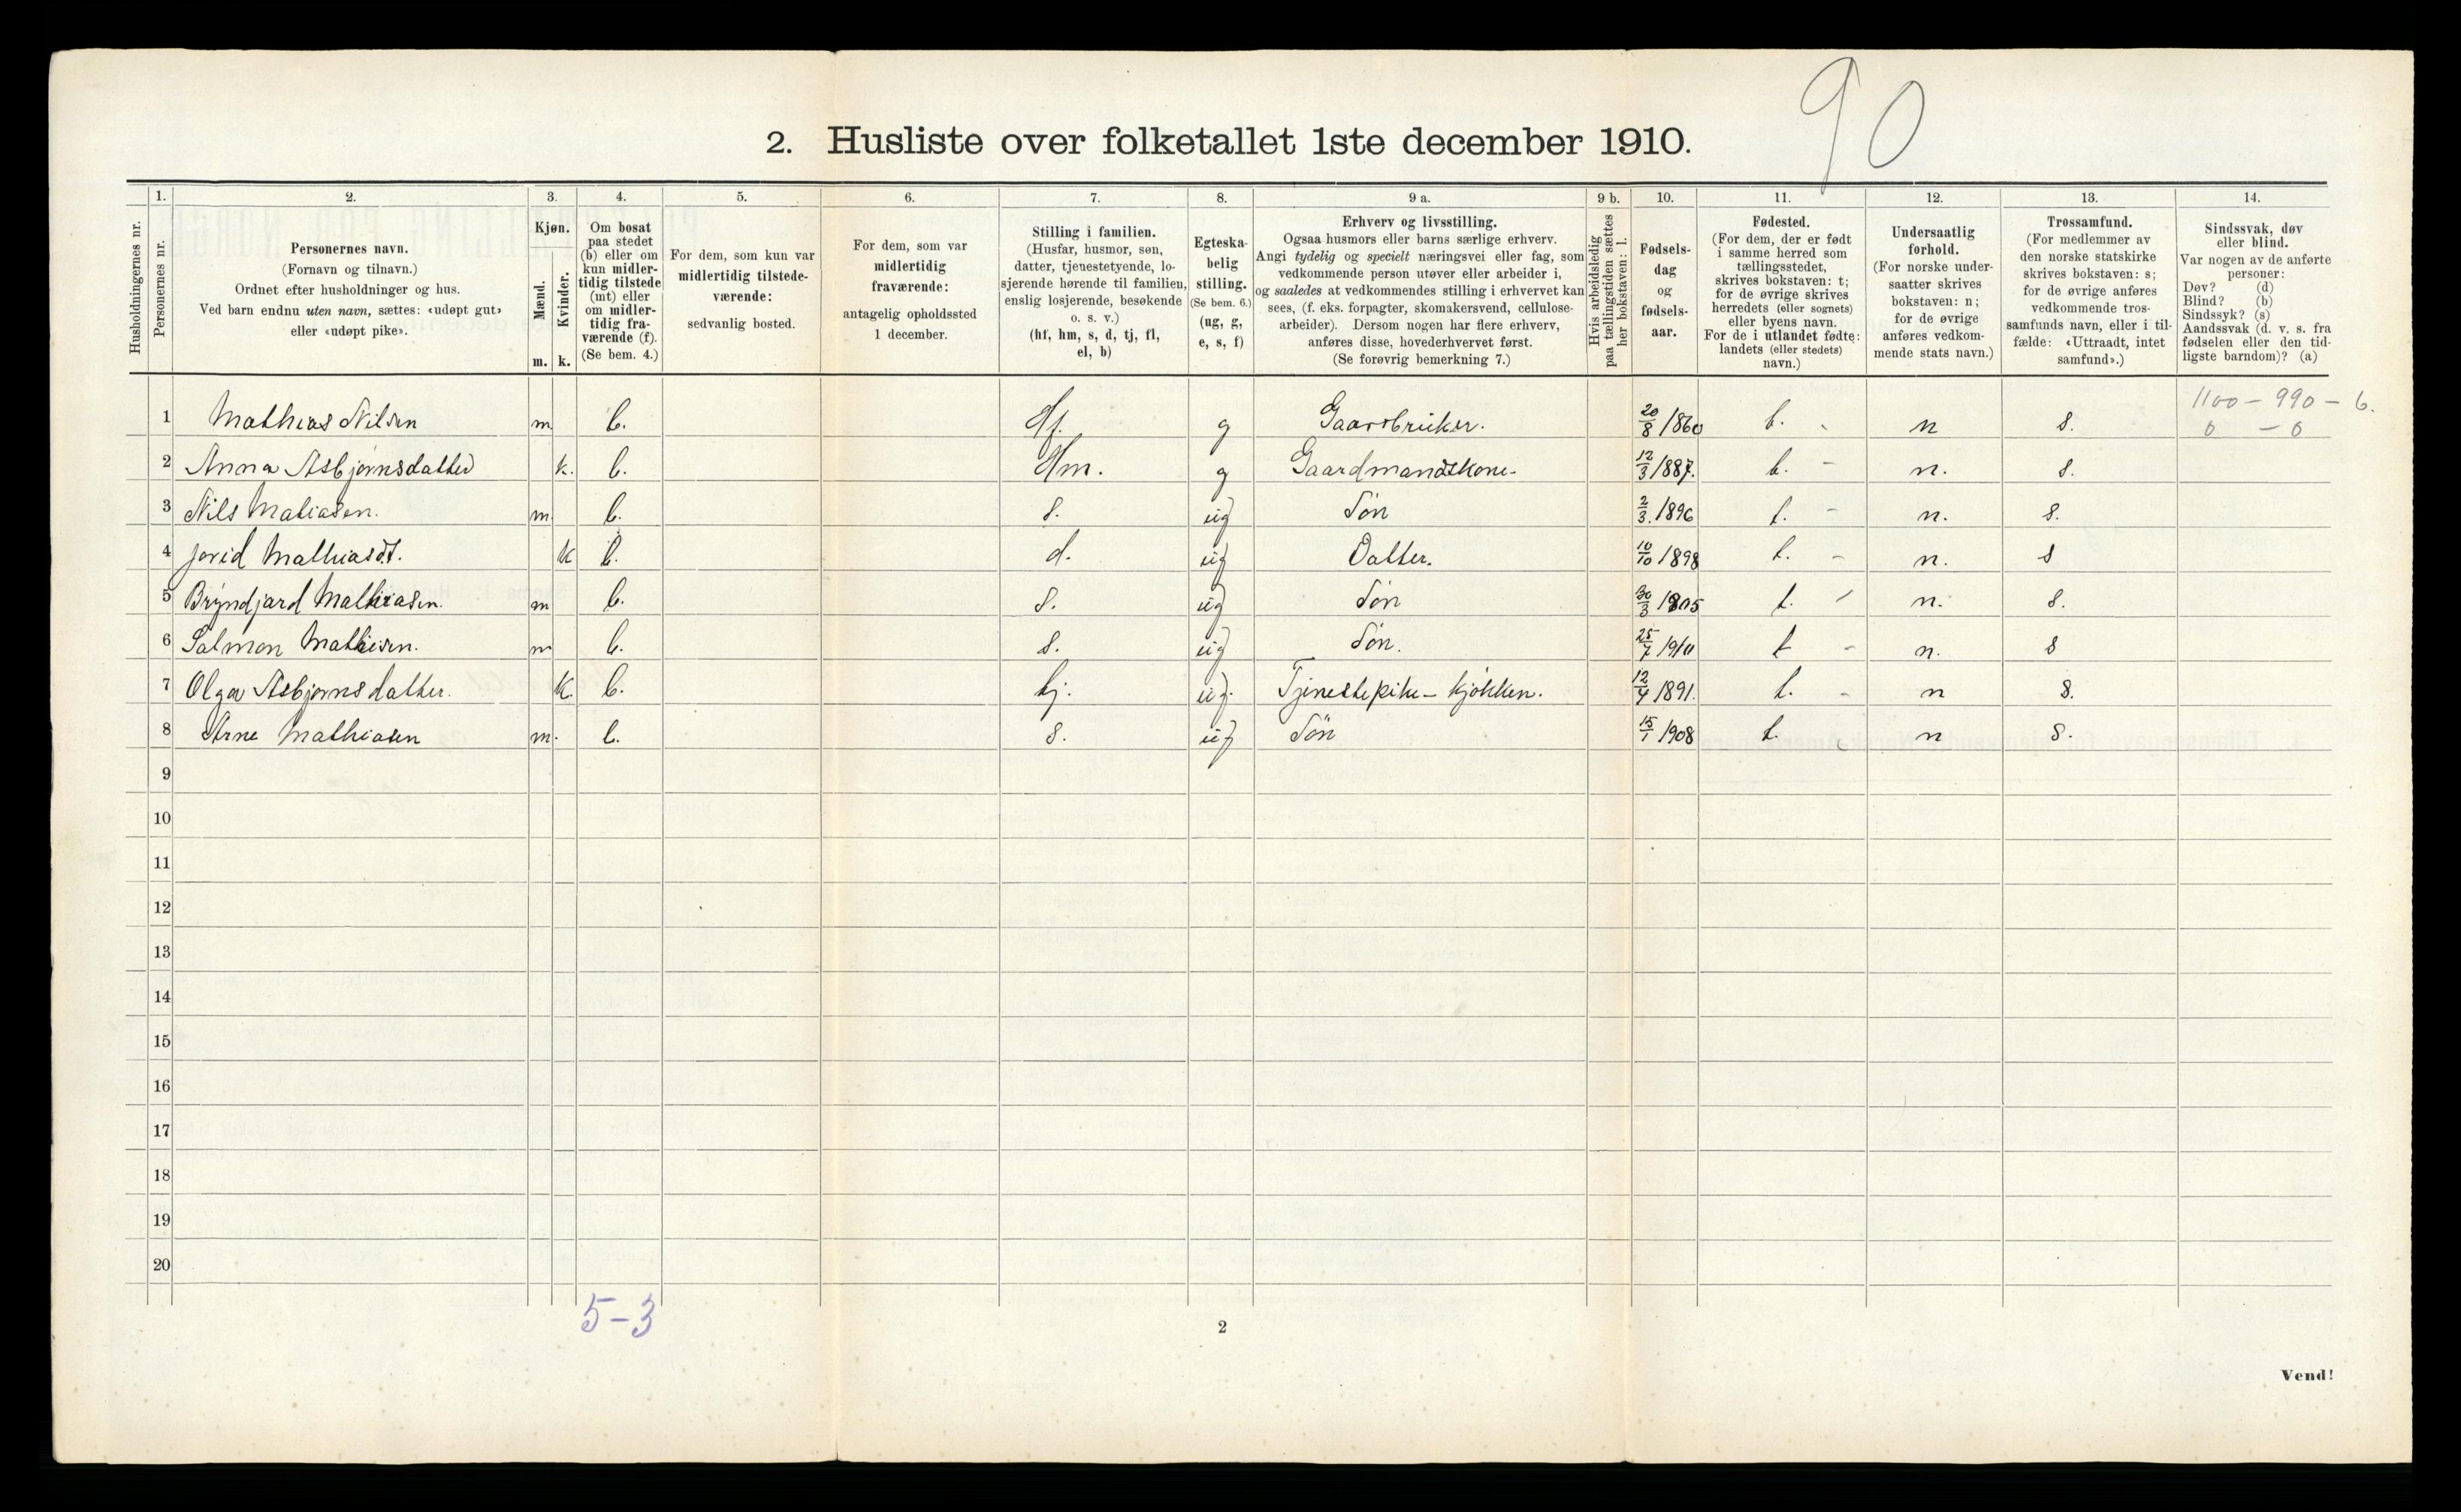 90
2. Husliste over folketallet 1ste december 1910.
Husholdningernes nr.
1.
Personernes nr.
2.
Personernes navn.
(Fornavn og tilnavn.)
Ordnet efter husholdninger og hus.
Ved barn endnu uten navn, sættes: «udøpt gut»
eller «udøpt pike».
3.
Kjøn.
Mænd.
Kvinder.
m. k.
4.
Om bosat
paa stedet
(b) eller om
kun midler-
tidig tilstede
(mt) eller
om midler-
tidig fra-
værende (f).
(Se bem. 4.)
5.
For dem, som kun var
midlertidig tilstede-
værende:
sedvanlig bosted.
6.
For dem, som var
midlertidig
fraværende:
antagelig opholdssted
1 december.
7.
Stilling i familien.
(Husfar, husmor, søn,
datter, tjenestetyende, lo-
sjerende hørende til familien,
enslig losjerende, besøkende
o. s. v.)
(hf, hm, s, d, tj, fl,
el, b)
8.
Egteska-
belig
stilling.
(Se bem. 6.)
(ug, g,
e, s, f)
9 a.
Erhverv og livsstilling.
Ogsaa husmors eller barns særlige erhverv.
Angi tydelig og specielt næringsvei eller fag, som
vedkommende person utøver eller arbeider i,
og saaledes at vedkommendes stilling i erhvervet kan
sees, (f. eks. forpagter, skomakersvend, cellulose-
arbeider). Dersom nogen har flere erhverv,
anføres disse, hovederhvervet først.
(Se forøvrig bemerkning 7.)
9 b.
Hvis arbeidsledig
paa tællingstiden sættes
her bokstaven: l.
10.
Fødsels-
dag
og
fødsels-
aar.
11.
Fødested.
(For dem, der er født
i samme herred som
tællingsstedet,
skrives bokstaven: t;
for de øvrige skrives
herredets (eller sognets)
eller byens navn.
For de i utlandet fødte:
landets (eller stedets)
navn.)
12.
Undersaatlig
forhold.
(For norske under-
saatter skrives
bokstaven: n;
for de øvrige
anføres vedkom-
mende stats navn.)
13.
Trossamfund.
(For medlemmer av
den norske statskirke
skrives bokstaven: s;
for de øvrige anføres
vedkommende tros-
samfunds navn, eller i til-
fælde: «Uttraadt, intet
samfund».)
14.
Sindssvak, døv
eller blind.
Var nogen av de anførte
personer:
Døv? (d)
Blind? (b)
Sindssyk? (s)
Aandssvak (d. v. s. fra
fødselen eller den tid-
ligste barndom)? (a)
1100 – 990 – 6.
1 Mathias Nilsen m b. Hf. g Gaardbruker. 20/8 1860 t. n s. 0 – 0
2 Anna Asbjørnsdatter k. b. Hm. g Gaardmandskone. 12/3 1887. t. – n. s.
3 Nils Matiasen. m b. s. ug Søn 2/3. 1896 t. – n. s.
4 Jorid Mathiasdt. k b. d. ug Datter. 10/10 1898 t. – n. s
5 Bryndjard Mathiasen. m b. s. ug Søn 30/3 1905 t. – n. s.
6 Salmon Mathisen. m b. s. ug Søn. 25/7 1910 t – n. s
7 Olga Asbjørnsdatter. k. b. tj. ug. Tjenestepike – kjøkken. 12/4 1891. t. – n s.
8 Arne Mathiasen m. b. s. ug Søn 15/1 1908 t. n s.
9
10
11
12
13
14
15
16
17
18
19
20
5–3
2
Vend!